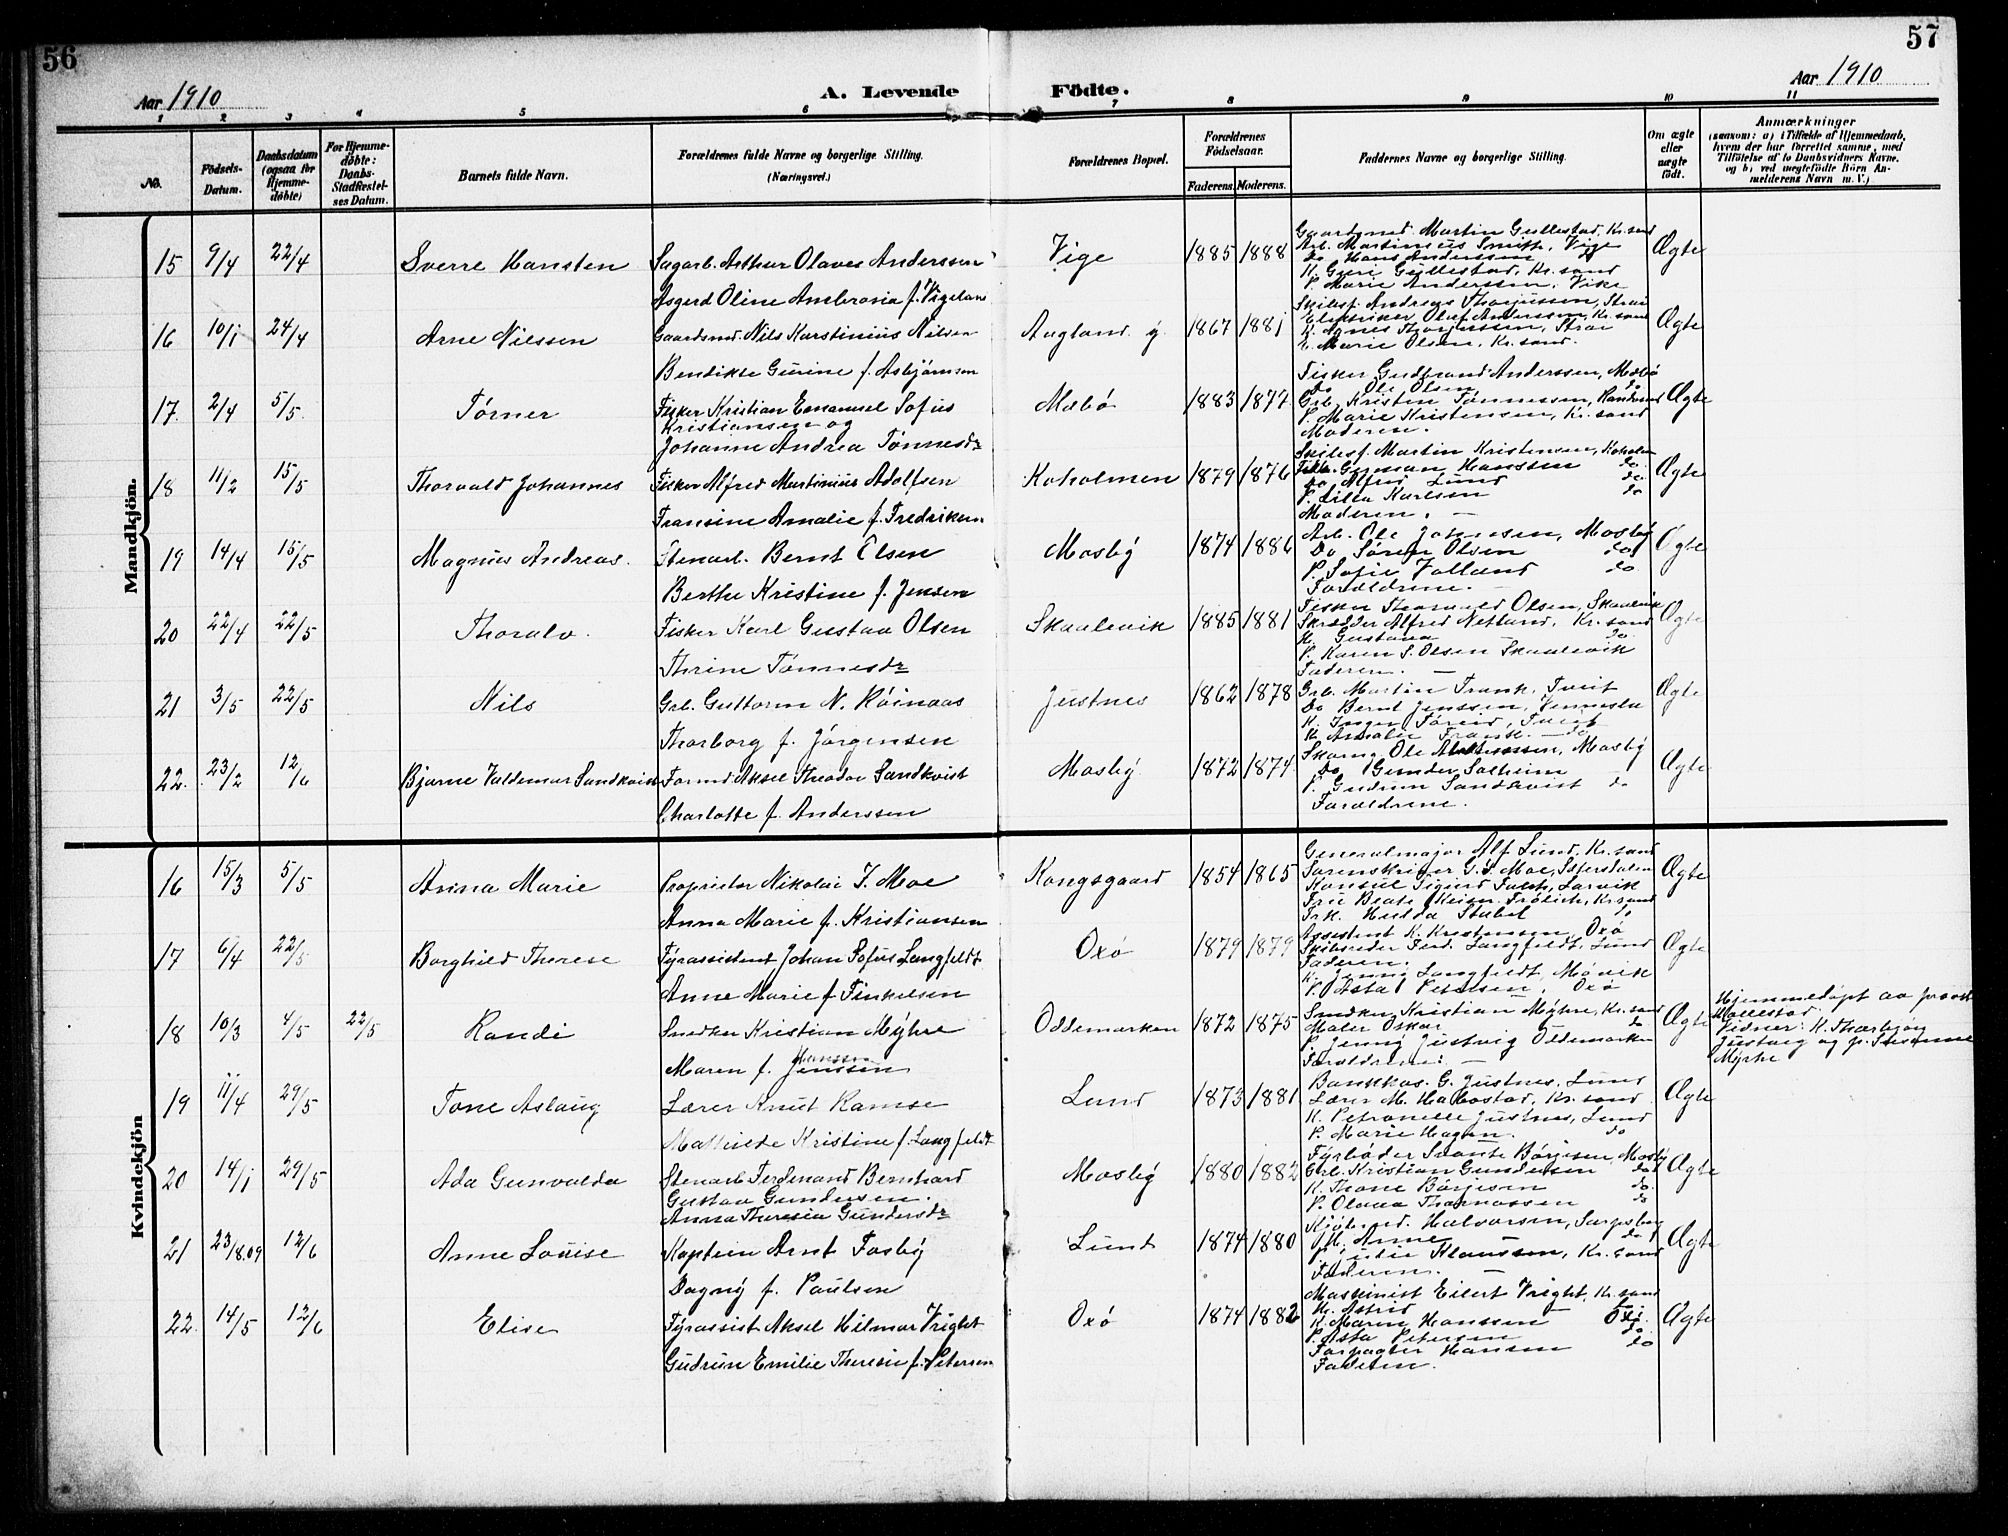 56
57
Aar 1910
A. Levende Födte.
Aar 1910
1 2 3 4 5 6 7 8 9 10 11
No.
Födsels-Datum.
Daabsdatum (ogsaa for Hjemmedöbte)
For Hjemmedöbte: Daabs-Stadfæstelses Datum.
Barnets fulde Navn.
Forældrenes fulde Navne og borgerlige Stilling. (Næringsvei.)
Forældrenes Bopæl.
Forældrenes Födselsaar.
Faderens. Moderens.
Faddernes Navne og borgerlige Stilling.
Om ægte eller uægte födt.
Anmærkninger
(saasom: a) i Tilfælde af Hjemmedaab, hvem der har forrettet samme, med Tilföielse af to Daabsvidners Navne, og b) ved uægtefödte Börn Anmelderens Navn m. V.)
Mandkjön.
15 9/4 22/4 Sverre Hansten
Sagarb. Arthur Olaves Anderssen
Asgerd Oline Ambrosia f. Vigeland
Vige 1885 1888
Gaardsmd. Martin Gullestad, Kr.sand
Arb. Martinius Smith, Vige
Do Hans Anderssen
K. Guri Gullestad, Kr. sand
P. Marie Anderssen, Vike
Ægte
16 10/1 24/4 Arne Nilssen
Gaardsmd. Nils Karstinius Nilsen
Bendikte Gurine f. Asbjørnsen
Augland y. 1867 1881
Skibsf. Andreas Thorjussen, Strai
Elektriker Olaf Anderssen, Kr. sand
K. Agnes Thorjussen, Strai
E. Marie Olsen, Kr. sand.
Ægte
17. 2/4 5/5 Tørner
Fisker Kristian Emanuel Sofus
Kristiansen og
Johanne Andrea Tønnesdr
Mæbø 1883 1877
Fisker Gudbrand Anderssen, Mæbø
Do Ole Olsen do
Grb. Kristen Tønnessen, Randesund
P. Marie Kristensen, Kr. sand
Moderen.
Ægte
18 11/2 15/5 Thorvald Johannes
Fisker Alfred Martinius Adolfsen
Fransine Amalie f. Fredriksen
Koholmen 1879 1876
Skibsf. Martin Kristensen, Koholm
Fisk. German Hanssen do
Do Alfred Lund do
P. Lilla Karlsen do
Moderen. —
Ægte
19 14/4 15/5 Magnus Andreas.
Stenarb. Bernt Olsen
Berthe Kristine f. Jensen
Mosby 1874 1886
Arb. Ole Johnsen, Mosby
Do Søren Olsen do
P. Sofie Volland do
Forældrene.
Ægte
20 22/4 22/5 Thoralv.
Fisker Karl Gustav Olsen
Thrine Tønnesdr
Skaalevik 1885 1881
Fisker Thorvald Olsen, Skaalevik
Skrædder Alfred Netland, Kr. sand
K. Gustava do
P. Karen S. Olsen Skaalevik
Faderen. —
Ægte
21 3/5 22/5 Nils
Grb. Guttorm N. Røinaas
Thorborg f. Jørgensen
Justnes 1862 1878
Grb. Martin Frank, Tveit
Do Bernt Jenssen, Vennesla
K. Inger Føreid, Tveit
K. Amalie Frank. do
Ægte
22. 23/2 12/6 Bjarne Valdemar Sandkvist
Formd. Aksel Theodor Sandkvist
Charlotte f. Anderssen
Mosby 1872 1874
Skomg. Ole, Mosby
Do Gunder Solheim
P. Gudrun Sandkvist do
Forældrene.
Ægte
Kvindekjön
16 15/3 5/5 Anna Marie
Proprietør Nikolai I. Moe
Anna Marie f. Kristiansen
Kongsgaard 1854 1865
Generalmajor Alf Lund, Kr. sand
Sorenskriver G. S. Moe, Sætersdalen
Konsul Sigurd Falch, Larvik
Fru Beate Keiser Frølich, Kr.sand
Frk. Hulda Stabel do
Ægte
17 6/4 22/5 Borghild Therese
Fyrassistent Johan Sofus Langfeldt
Anne Marie f. Finkelsen
Oxø 1879 1879
Assistent K. Kristensen, Oxø
Skibsreder Ferd. Langfeldt, Lund
Faderen.
K. Jenny Langfeldt, Møvik
P. Asta Petersen, Oxø
Ægte
18 10/3 4/5 22/5 Randi
Snedker Kristian Myhre
Hanssen
Maren f. Jenssen
Oddemarken 1872 1875
Snedker Kristian Myhre, Kr. sand
Maler Oskar do
P. Jenny Justvig Oddemarken
Forældrene. —
Ægte
Hjemmedøpt av provst
Møllestad
Vidner: K. Thorbjørg
Justvig og p. Susanne
Myhre
19 11/4 29/5 Tone Aslaug
Lærer Knut Ramse
Mathilde Kristine f. Langfeldt
Lund 1873 1881
Bankkas. G. Justnes, Lund
Lærer M. Habostad, Kr. sand
K. Petronelle Justnes, Lund
P. Marie Hagen. do
Ægte
20 14/1 29/5 Ada Gunvalda
Stenarb. Ferdinand Bernhard
Gustav Gundersen.
Anna Theresia Gundersdr
Mosby 1880 1882
Fyrbøder Svante Børjesen, Mosby
Grb. Kristian Gundersen do
K. Thone Børjesen do
P. Olava Thomassen do
Ægte
21 23/8.09 12/6 Anne Louise
Kaptein Arnt Fosby
Dagny f. Paulsen
Lund 1874 1880
Kjøbmd. Halvorsen, Sarpsborg
K. Anne do
P. Julie Klaussen, Kr. sand
Faderen. —
Ægte
22. 14/5 12/6 Elise
Fyrassist Aksel Hilmar Vright
Gudrun Emilie Theresie f. Petersen
Oxø 1874 1882
Maskinist Eilert Vright, Kr. sand
K. Astrid do
K. Maren Hanssen Oxø
P. Asta Petersen do
Forpagter Hansen do
Faderen.
Ægte